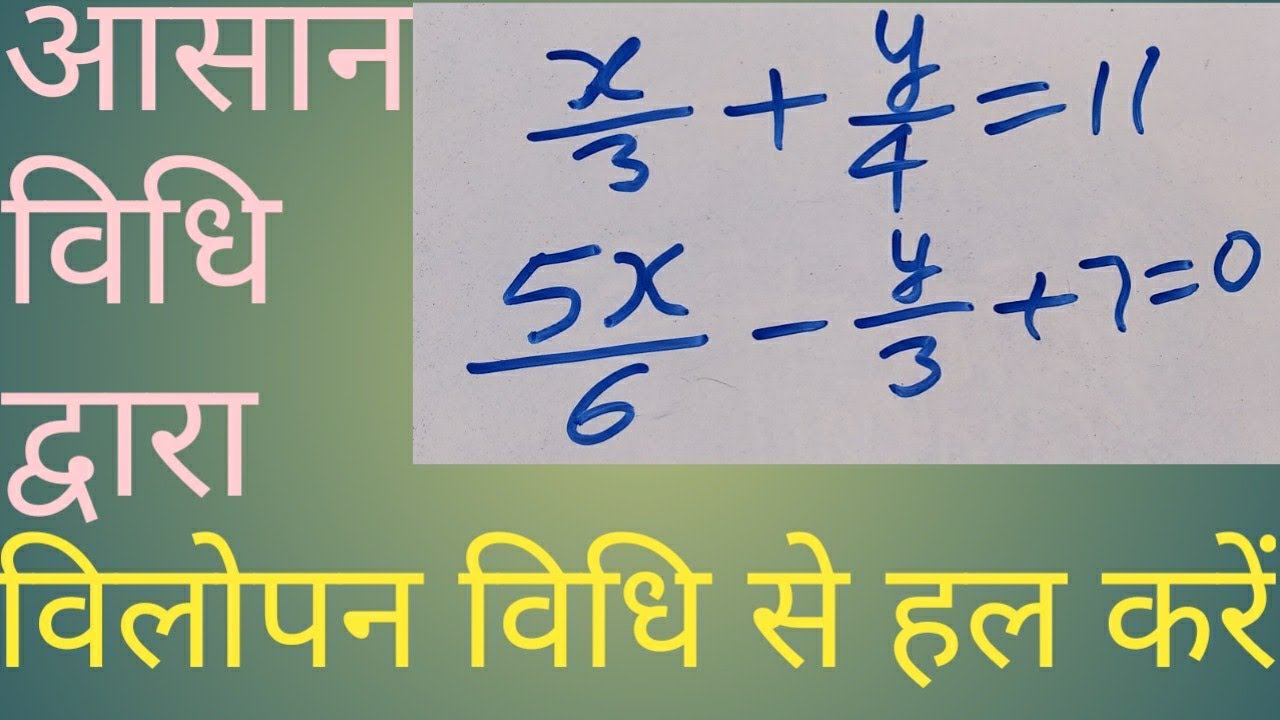 आसान
विधि
द्वारा
x/3 + y/4 = 11
5x/6 - y/3 + 7 = 0
विलोपन विधि से हल करें